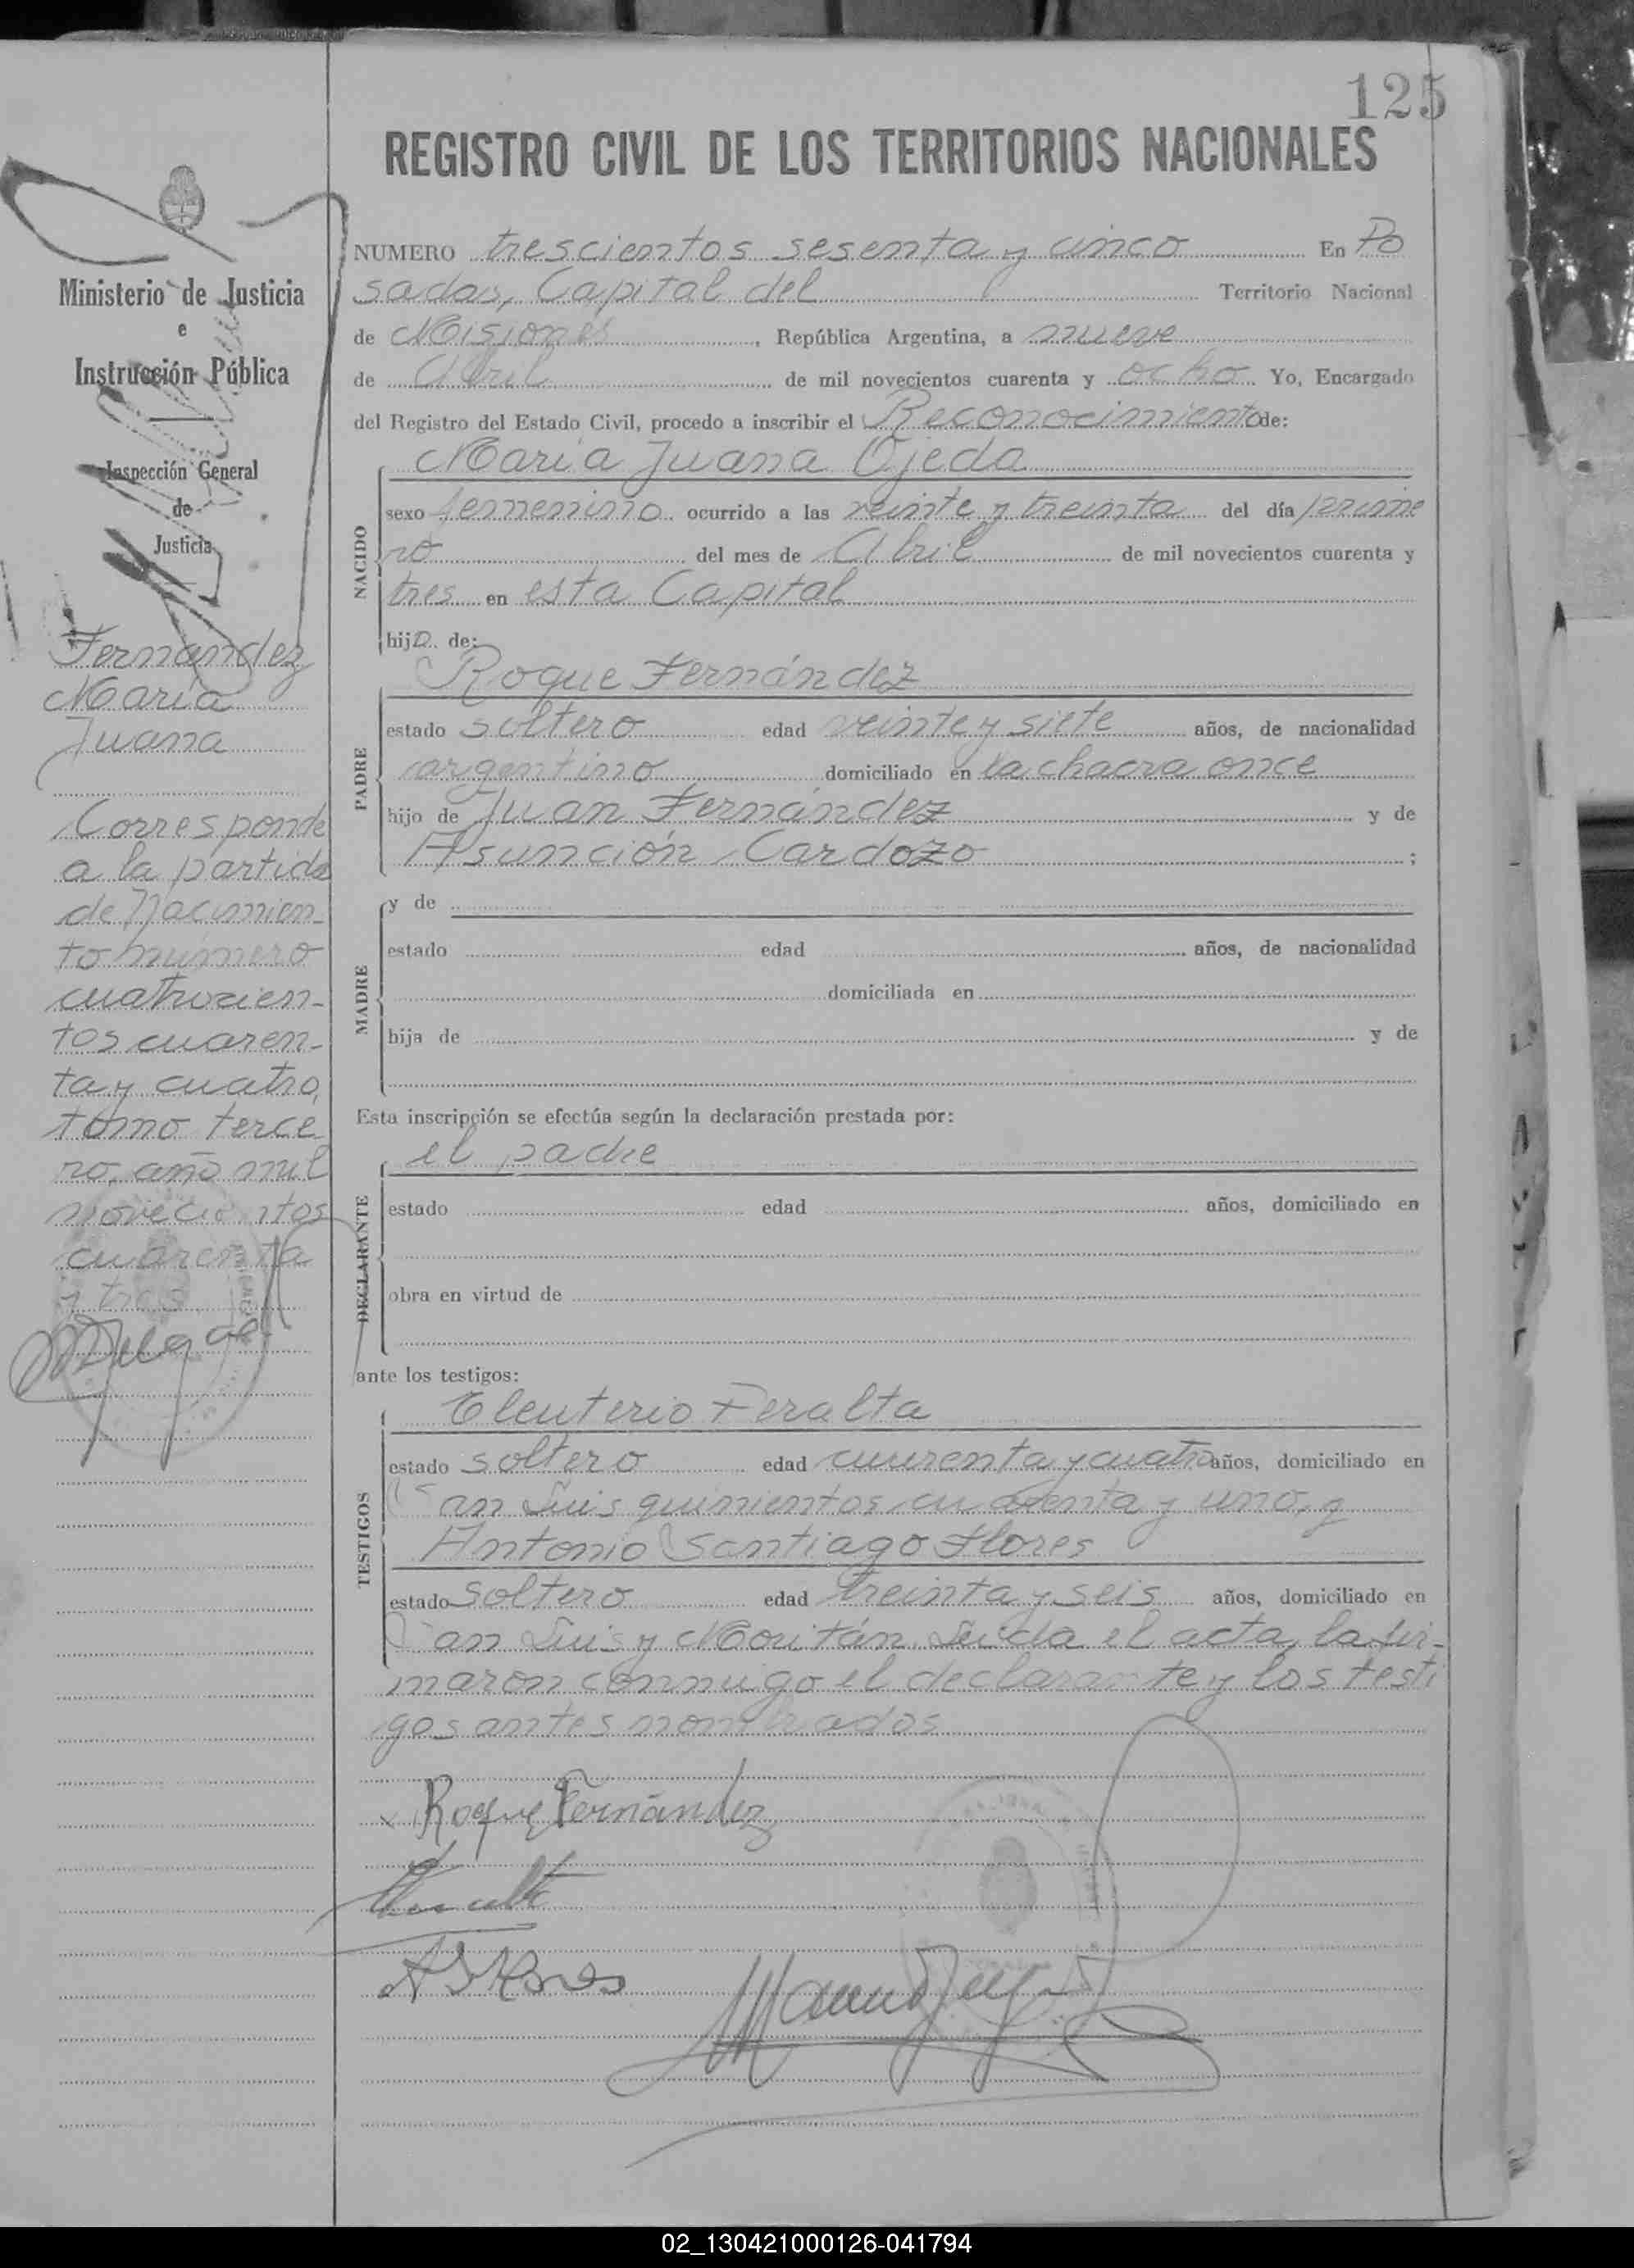 125
REGISTRO CIVIL DE LOS TERRITORIOS NACIONALES
Ministerio de Justicia
e
Instrucción Pública
Inspección General
de
Justicia
Fernández
María
Juana
Corresponde
a la partida
de Nacimien-
to número
cuatrocien-
tos cuaren-
ta y cuatro,
tomo terce
ro, año mil
novecientos
cuarenta
y tres
NUMERO trescientos sesenta y cinco En Po
sadas, Capital del Territorio Nacional
de Misiones, República Argentina, a nueve
de Abril de mil novecientos cuarenta y ocho Yo, Encargado
del Registro del Estado Civil, procedo a inscribir el Reconocimiento de:
María Juana Ojeda
NACIDO
sexo femenino ocurrido a las veinte y treinta del día prime
ro del mes de Abril de mil novecientos cuarenta y
tres en esta Capital
hija de:
Roque Fernández
PADRE
estado soltero edad veinte y siete años, de nacionalidad
argentino domiciliado en la chacra once
hijo de Juan Fernández y de
Asunción Cardozo ;
MADRE
y de
estado edad años, de nacionalidad
domiciliada en
hija de y de
Esta inscripción se efectúa según la declaración prestada por:
el padre
DECLARANTE
estado edad años, domiciliado en
obra en virtud de
ante los testigos:
Eleuterio Peralta
TESTIGOS
estado soltero edad cuarenta y cuatro años, domiciliado en
San Luis quinientos cuarenta y uno, y
Antonio Santiago Flores
estado soltero edad treinta y seis años, domiciliado en
San Luis y Moritán. Leida el acta, la fir-
maron conmigo el declarante y los testi
gos antes nombrados
x Roque Fernández
A S Flores
02_130421000126-041794